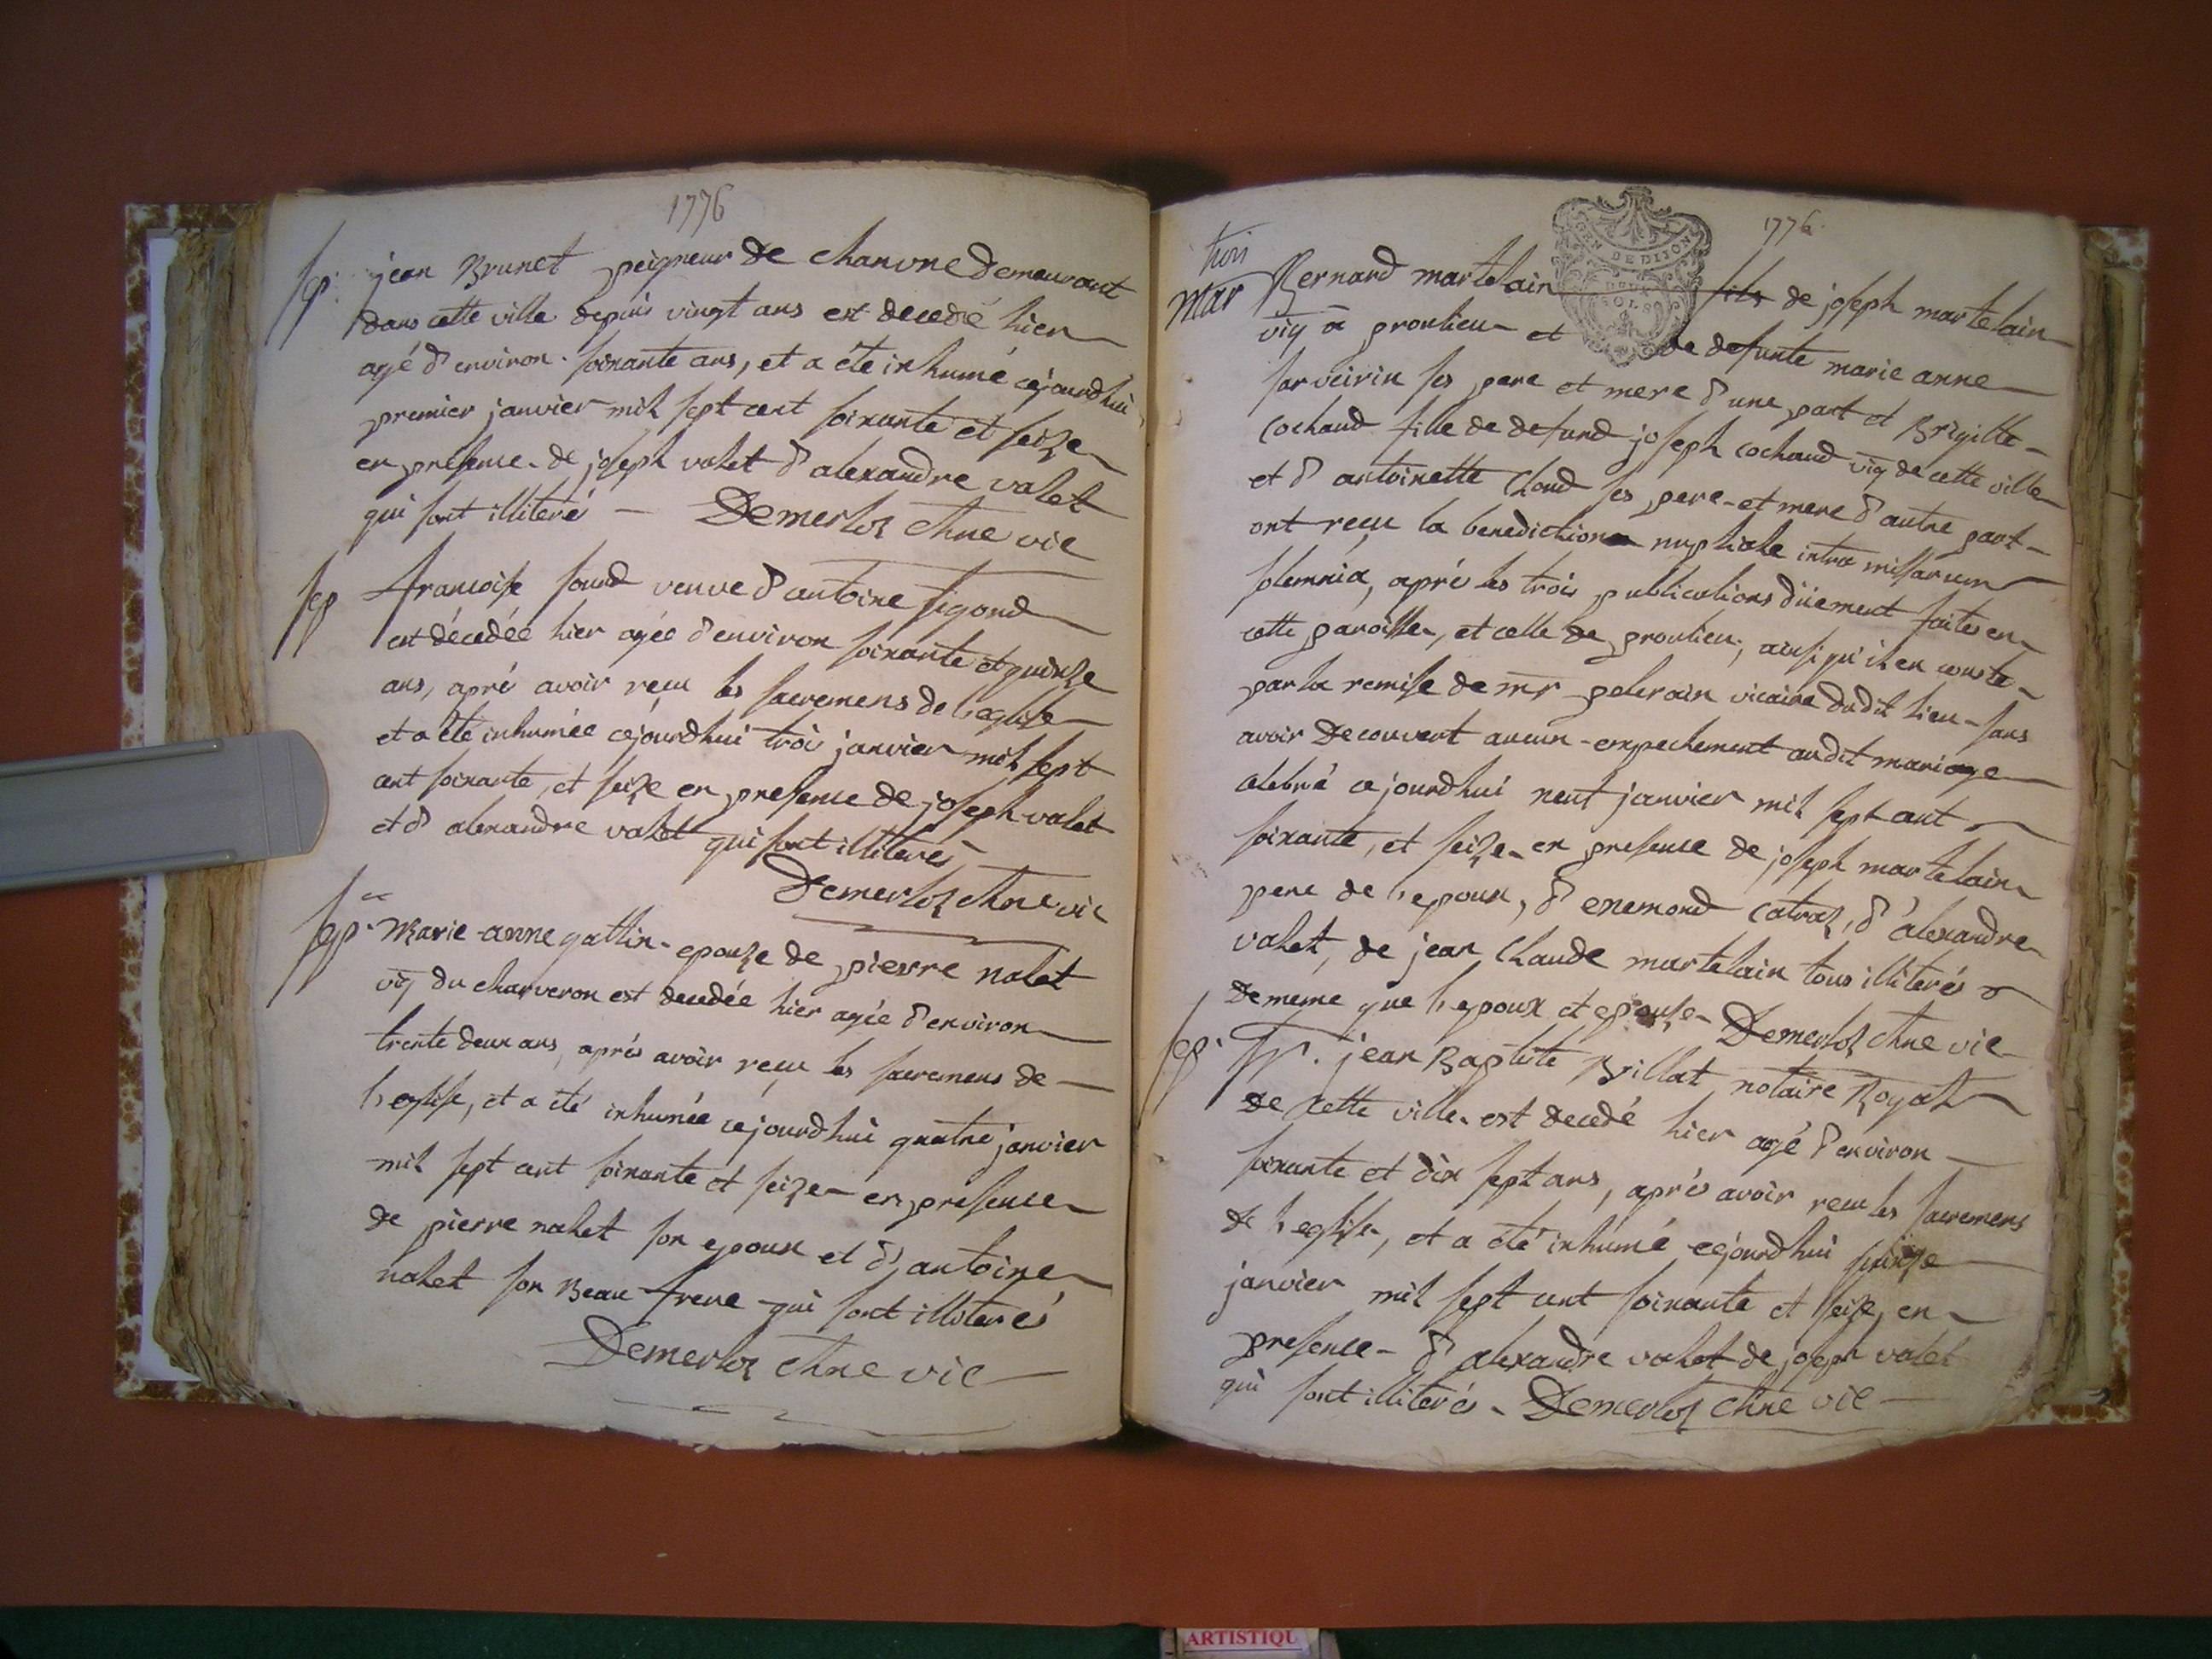 1776
sep. jean Brunet peigneur de chanvre demeurant
dans cette ville depuis vingt ans est decedé hier
agé d'environ soixante ans, et a été inhumé cejourdhui
premier janvier mil sept cent soixante et seize
en presence de joseph valet d'alexandre valet
qui sont illiterés Demerloz chne vic
sep francoise soud veuve d'antoine sigond
est décedée hier agée d'environ soixante et quinze
ans, apré avoir reçu les sacremens de l'eglise
et a été inhumée cejourdhui trois janvier mil sept
cent soixante, et seize en presence de joseph valet
et d'alexandre valet qui sont illiterés
Demerloz chne vic
sep. Marie-anne gattin epouze de pierre nalet
vig du charveron est decedée hier agée d'environ
trente deux ans, aprés avoir reçu les sacremens de
l'eglise, et a été inhumée cejourdhui quatre janvier
mil sept cent soixante et seize en presence
de pierre nalet son epoux et d'antoine
nalet son Beau-frere qui sont illiterés
Demerloz chne vic
1776
GEN DE DIJON
DEUX
SOLS
trois
Mar Bernard martelain fils de joseph martelain
vig à proulieu et de defunte marie anne
sarveirin ses pere et mere d'une part et Brigitte
Cochaud fille de defund joseph cochaud vig de cette ville
et d'antoinette Choud ses pere et mere d'autre part
ont reçu la benediction nuptiale intra missarum
solemnia, apré les trois publications düement faites en
cette paroisse, et celle de proulieu, ainsi qu'il en conste
par la remise de mr pelerain vicaire dudit lieu sans
avoir decouvert aucun empechement audit mariage
celebré cejourdhui neuf janvier mil sept cent
soixante, et seize en presence de joseph martelain
pere de l'epoux, d'enemond catraz, d'alexandre
valet, de jean Claude martelain tous illiterés
de meme que l'epoux et epouse Demerloz chne vic
sep. Sr. jean Baptiste Brillat notaire Royal
de cette ville est decedé hier agé d'environ
soixante et dix sept ans, aprés avoir reçu les sacremens
de l'eglise, et a été inhumé cejourdhui
janvier mil sept cent soixante et seize en
presence d'alexandre valet de joseph valet
qui sont illiterés Demerloz chne vic
ARTISTIQU